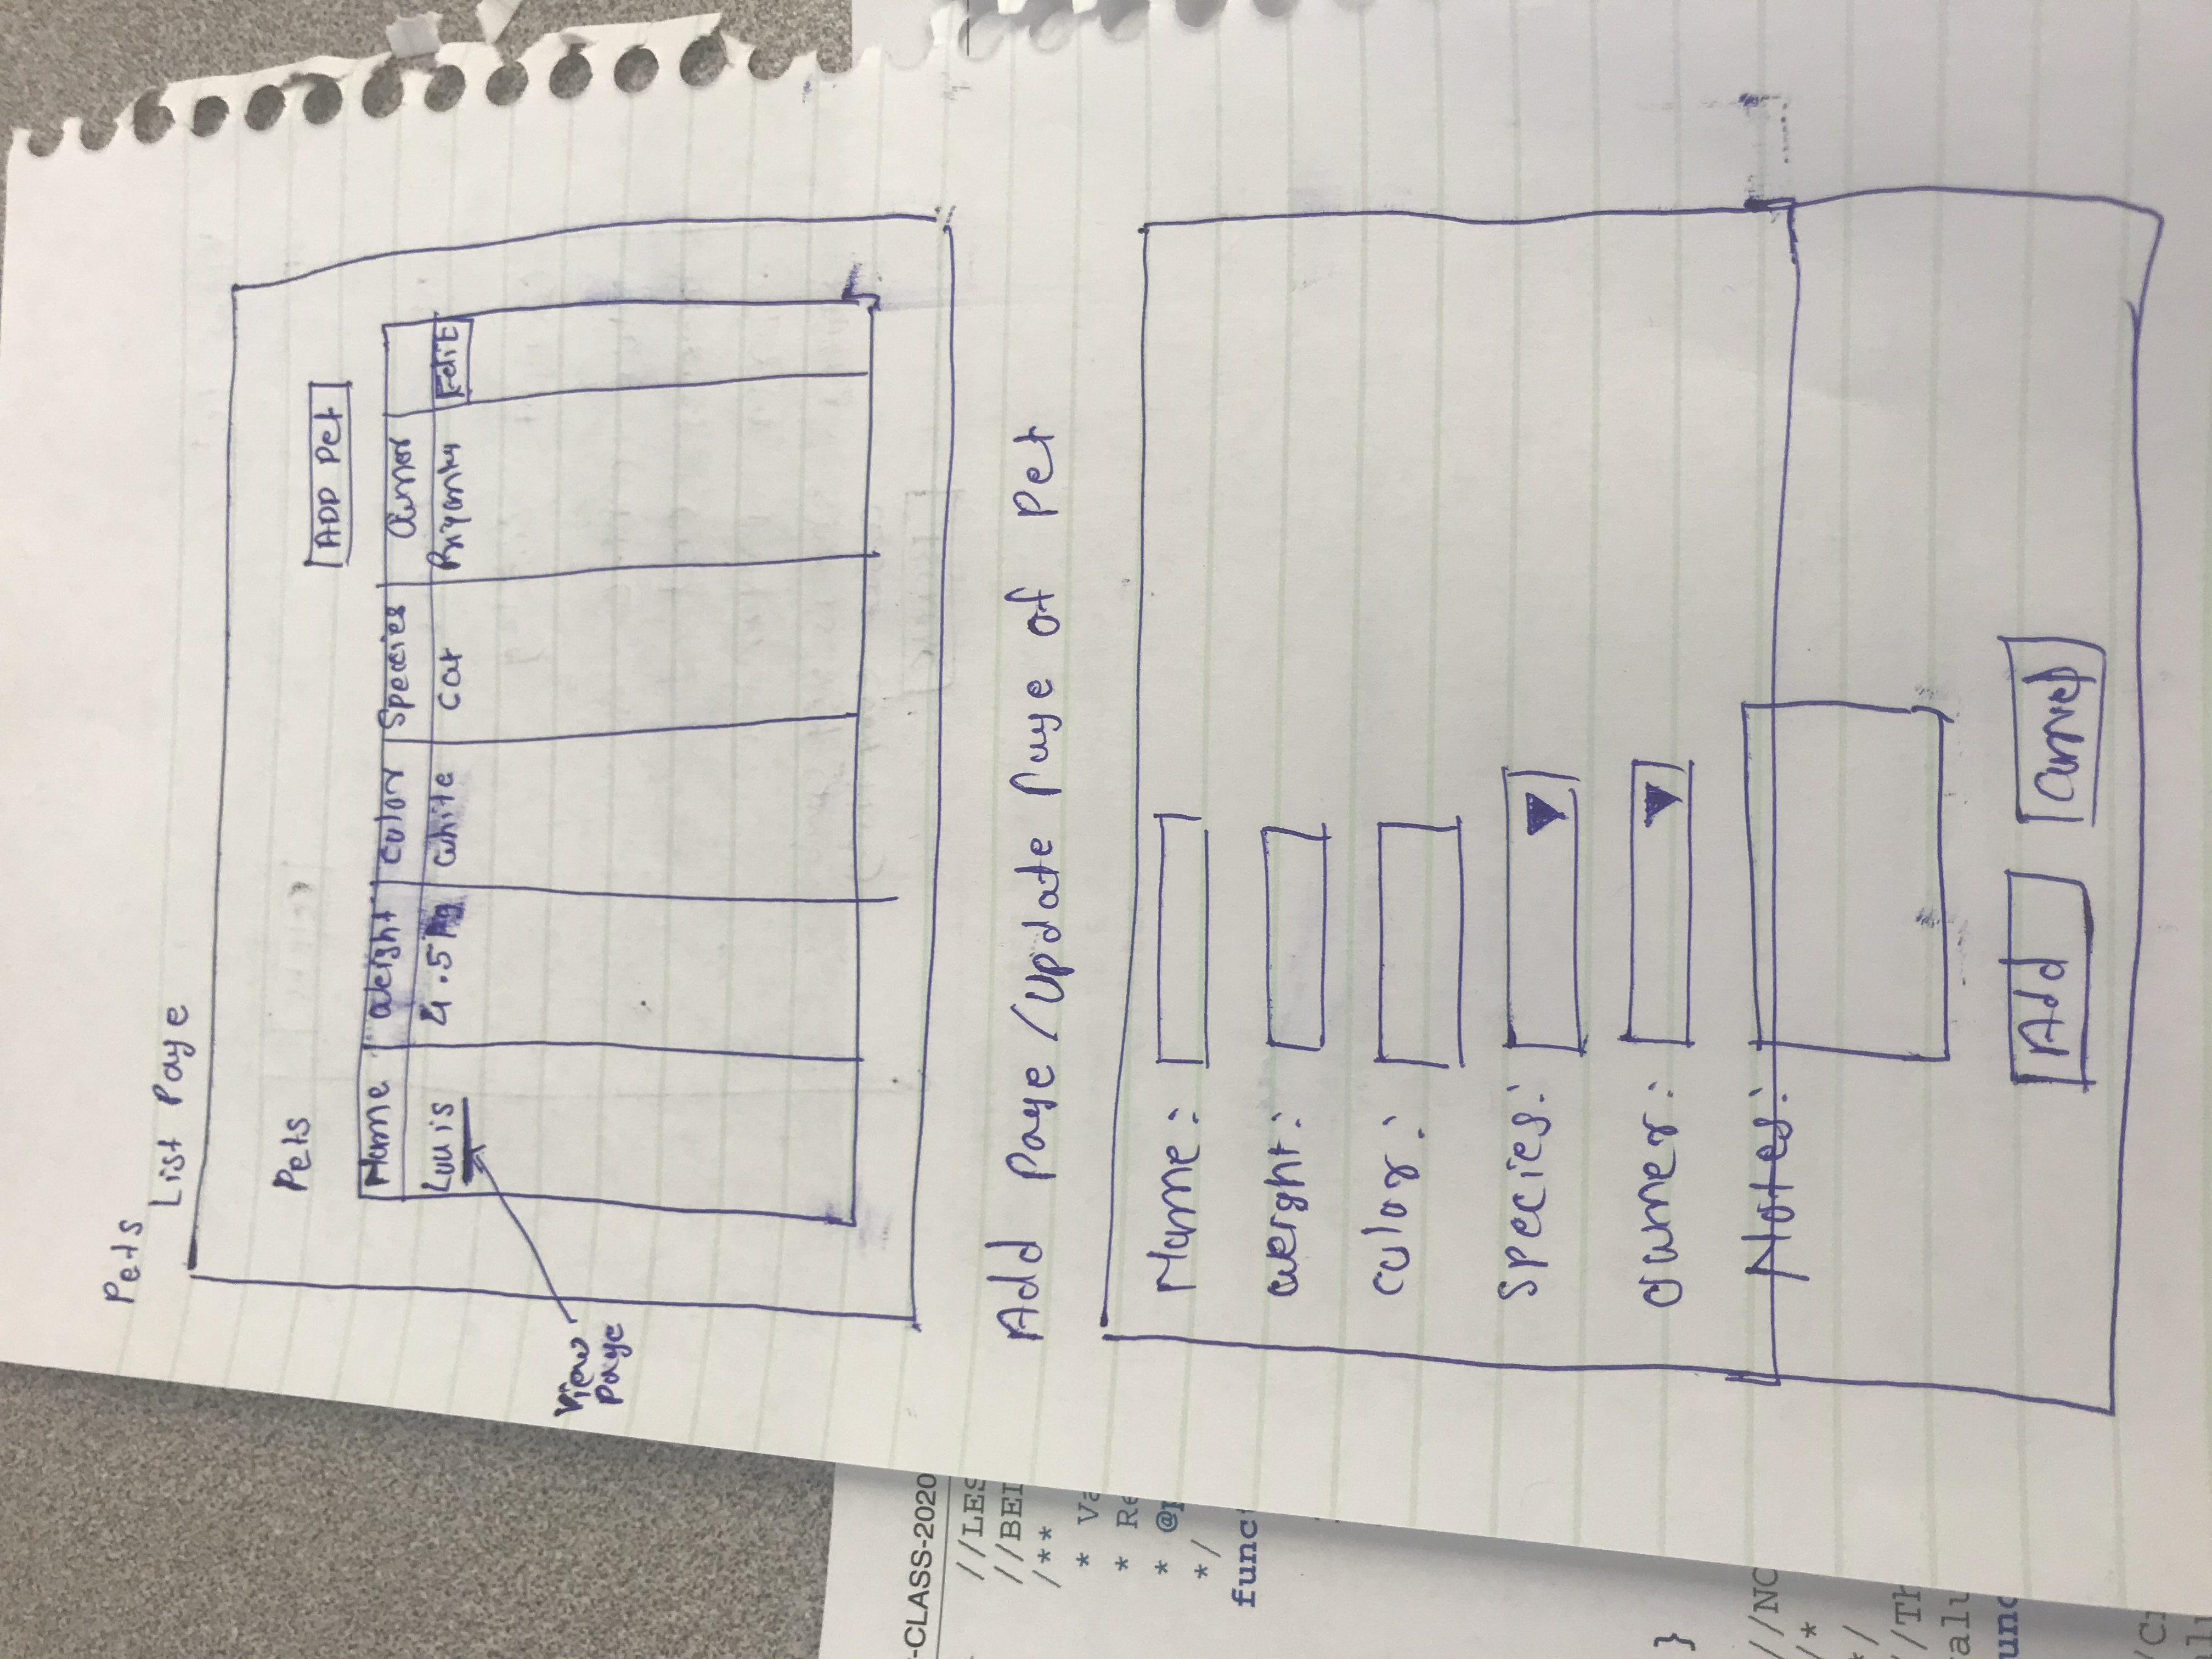 Pets
List Page
Pets
ADD Pet
Name Weight Color Species Owner
Louis 4.5 kg White Cat Priyanka Edit
View
Page
Add Page / Update Page of Pet
Name:
Weight:
Color:
Species:
Owner:
Notes:
Add Cancel
-CLASS-2020
//LES
//BEI
/**
* Va
* Re
* @p
*/
funct
}
//NO
/*
*/
//Th
valu
func
/Cr